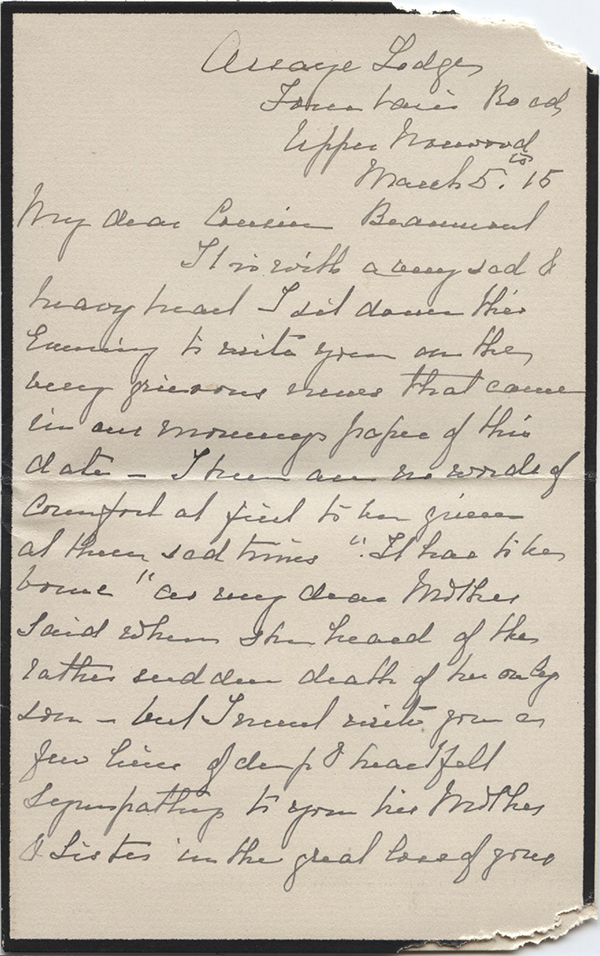 Assaye Lodge
Fountain Road
Upper Norwood
March 5. 15
My dear Cousin Beaumont
It is with a very sad &
heavy heart I sit down this
Evening to write you on the
very grievous news that came
in our morning's paper of this
date – There are no words of
comfort at first to be given
at these sad times ". It has to be
borne " as my dear Mother
said when she heard of the
rather sudden death of her only
son – but I must write you a
few lines of deep & heartfelt
sympathy to you his Mother
& Sister in the great loss of your